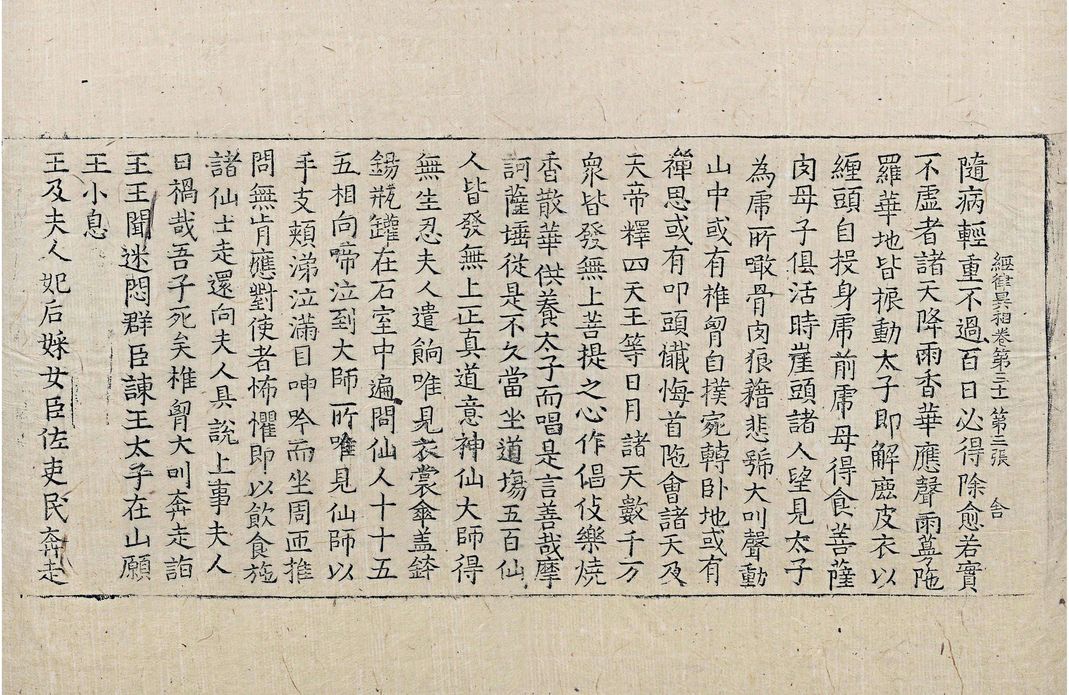 經律異相卷第三十一 第二張 舍
隨病輕重不過百日必得除愈若實
不虛者諸天降雨香華應聲雨㝹陁
羅華地皆振動太子即解鹿皮衣以
纏頭自投身虎前虎母得食菩薩
肉母子俱活時崖頭諸人望見太子
為虎所噉骨肉狼藉悲號大叫聲動
山中或有椎胷自撲宛轉卧地或有
禪思或有叩頭懺悔首陁會諸天及
天帝釋四天王等日月諸天數千万
衆皆發無上菩提之心作倡伎樂燒
香散華供養太子而唱是言善哉摩
訶薩埵從是不久當坐道塲五百仙
人皆發無上正真道意神仙大師得
無生忍夫人遣餉唯見衣裳傘盖鉢
錫瓶罐在石室中遍問仙人十十五
五相向啼泣到大師所唯見仙師以
手支頰涕泣滿目呻吟而坐周匝推
問無肯應對使者怖懼即以飲食施
諸仙士走還向夫人具說上事夫人
曰禍哉吾子死矣椎胷大叫奔走詣
王王聞迷悶群臣諫王太子在山願
王小息
王及夫人妃后婇女臣佐吏民奔走